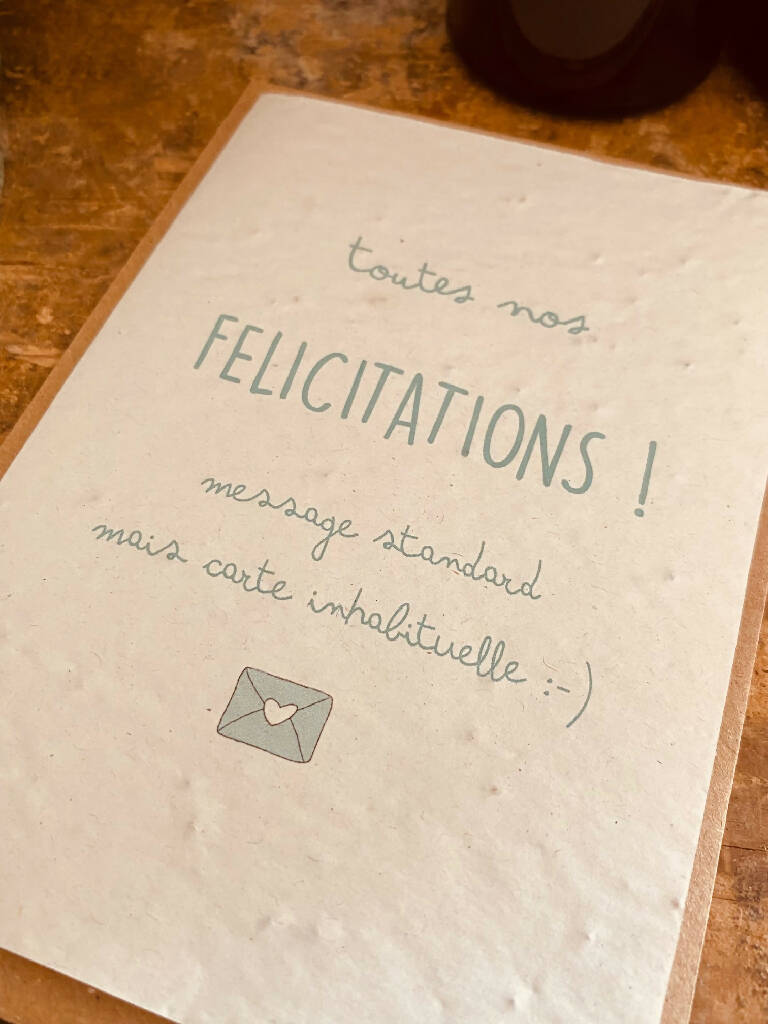 toutes nos
FELICITATIONS !
message standard
mais carte inhabituelle :-)